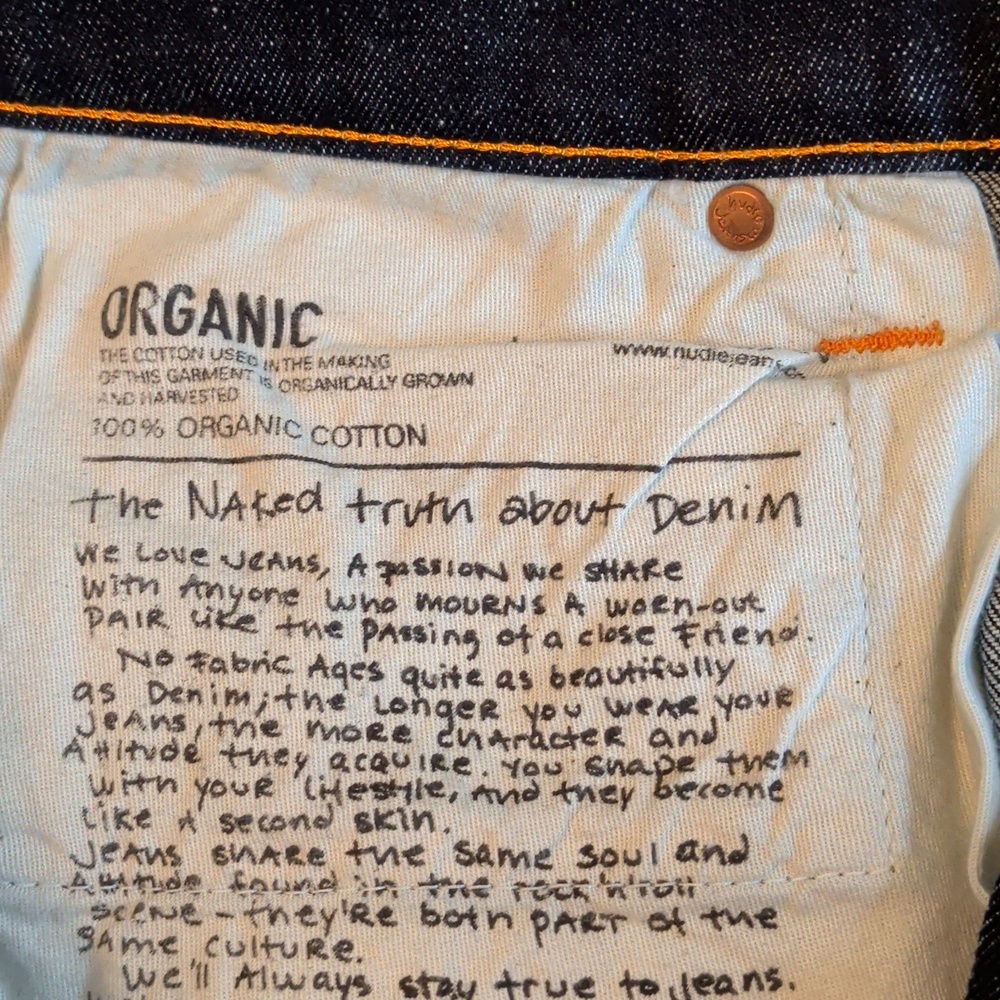 nudie jeans co
ORGANIC
THE COTTON USED IN THE MAKING
OF THIS GARMENT IS ORGANICALLY GROWN
AND HARVESTED
100% ORGANIC COTTON
www.nudiejeans.co
the NAked truth about Denim
We Love JEANS, A passion we SHARe
with Anyone who MOURNS A worn-out
PAIR like the PAssing of a close Friend.
No Fabric Ages quite as beautifully
as Denim; the Longer you weAR your
JeANS, the more chARacter and
Attitude they acquire. You shape them
with your Lifestyle, And they become
Like A second skin.
JeANS shARe the same soul and
Attitude found in the rock'n'roll
SceNe - they're both pART of the
SAme culture.
We'll Always stay true to Jeans.